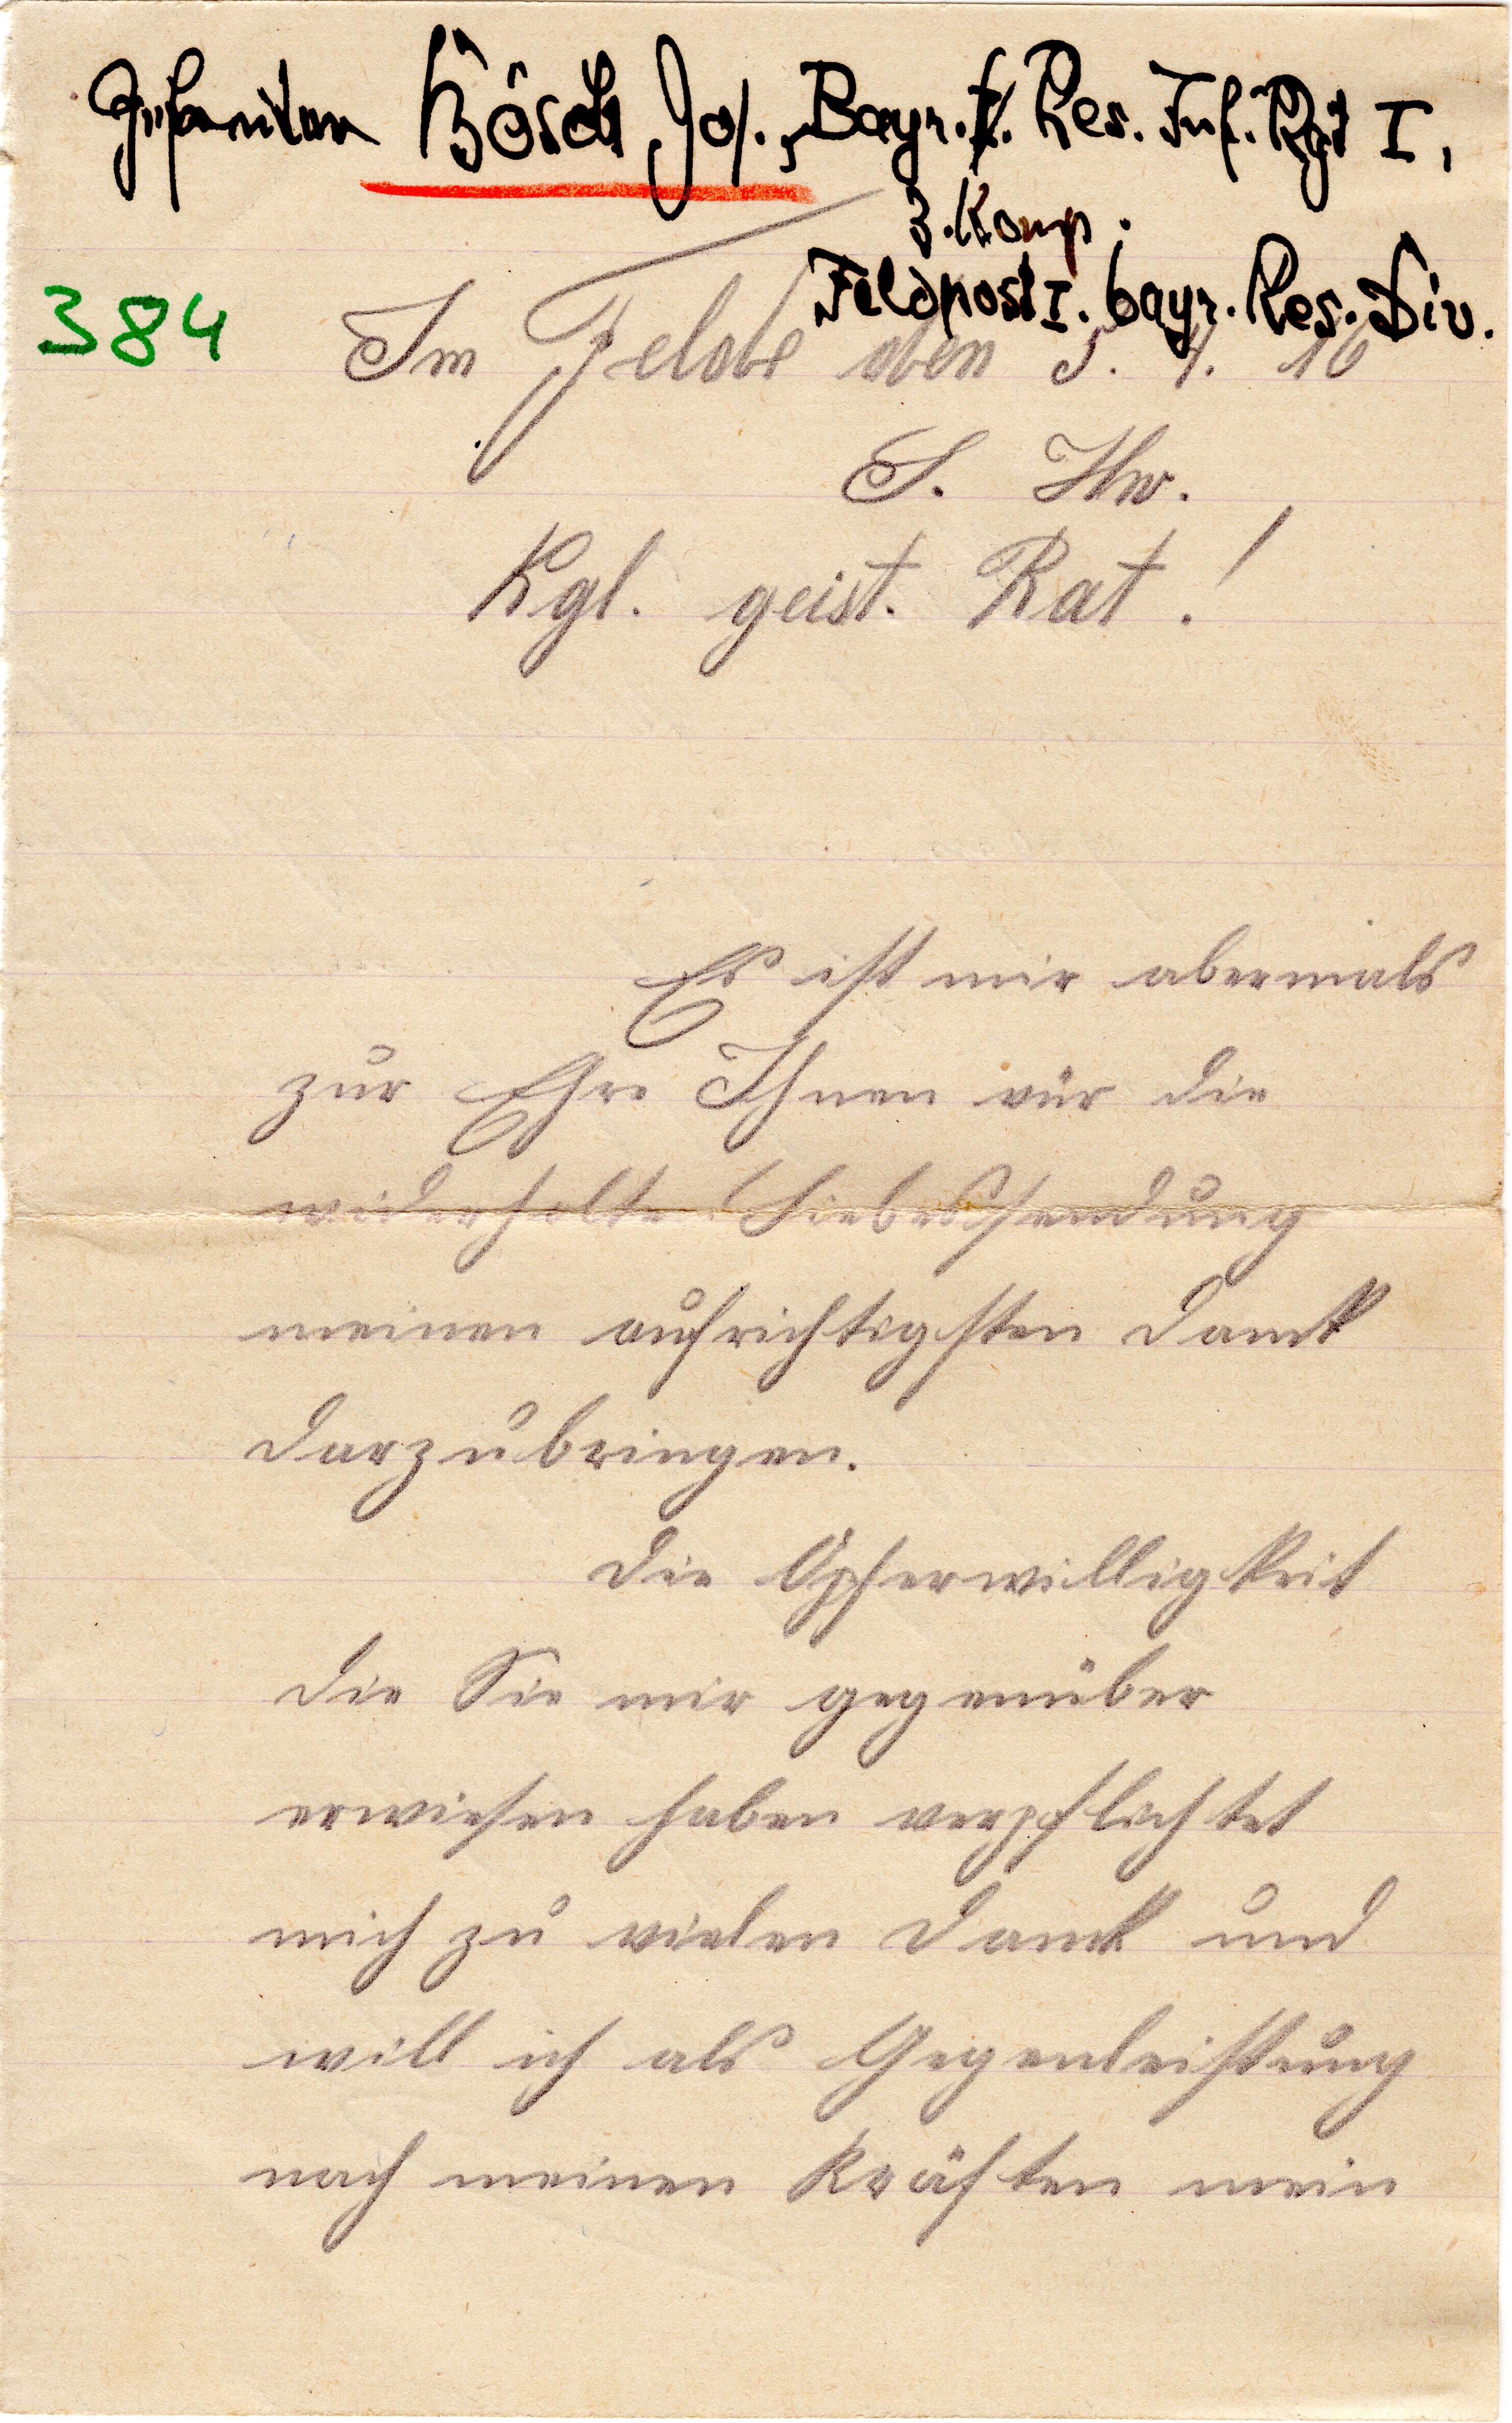 Bösch Jos., Bayr. Res. Inf. Rgt I,
3. Komp.
Feldpost I. bayr. Res. Div.
384
Im Felde den 5. 4. 16
S. Hw.
Kgl. geist. Rat!
Es ist mir abermals
zur Ehre Ihnen vür die
widerholte Liebessendung
meinen aufrichtigsten Dank
darzubringen.
Die Opferwilligkeit
die Sie mir gegenüber
erwiesen haben verpflichtet
mich zu vielen Dank und
will ich als Gegenleistung
nach meinen Kräften mein